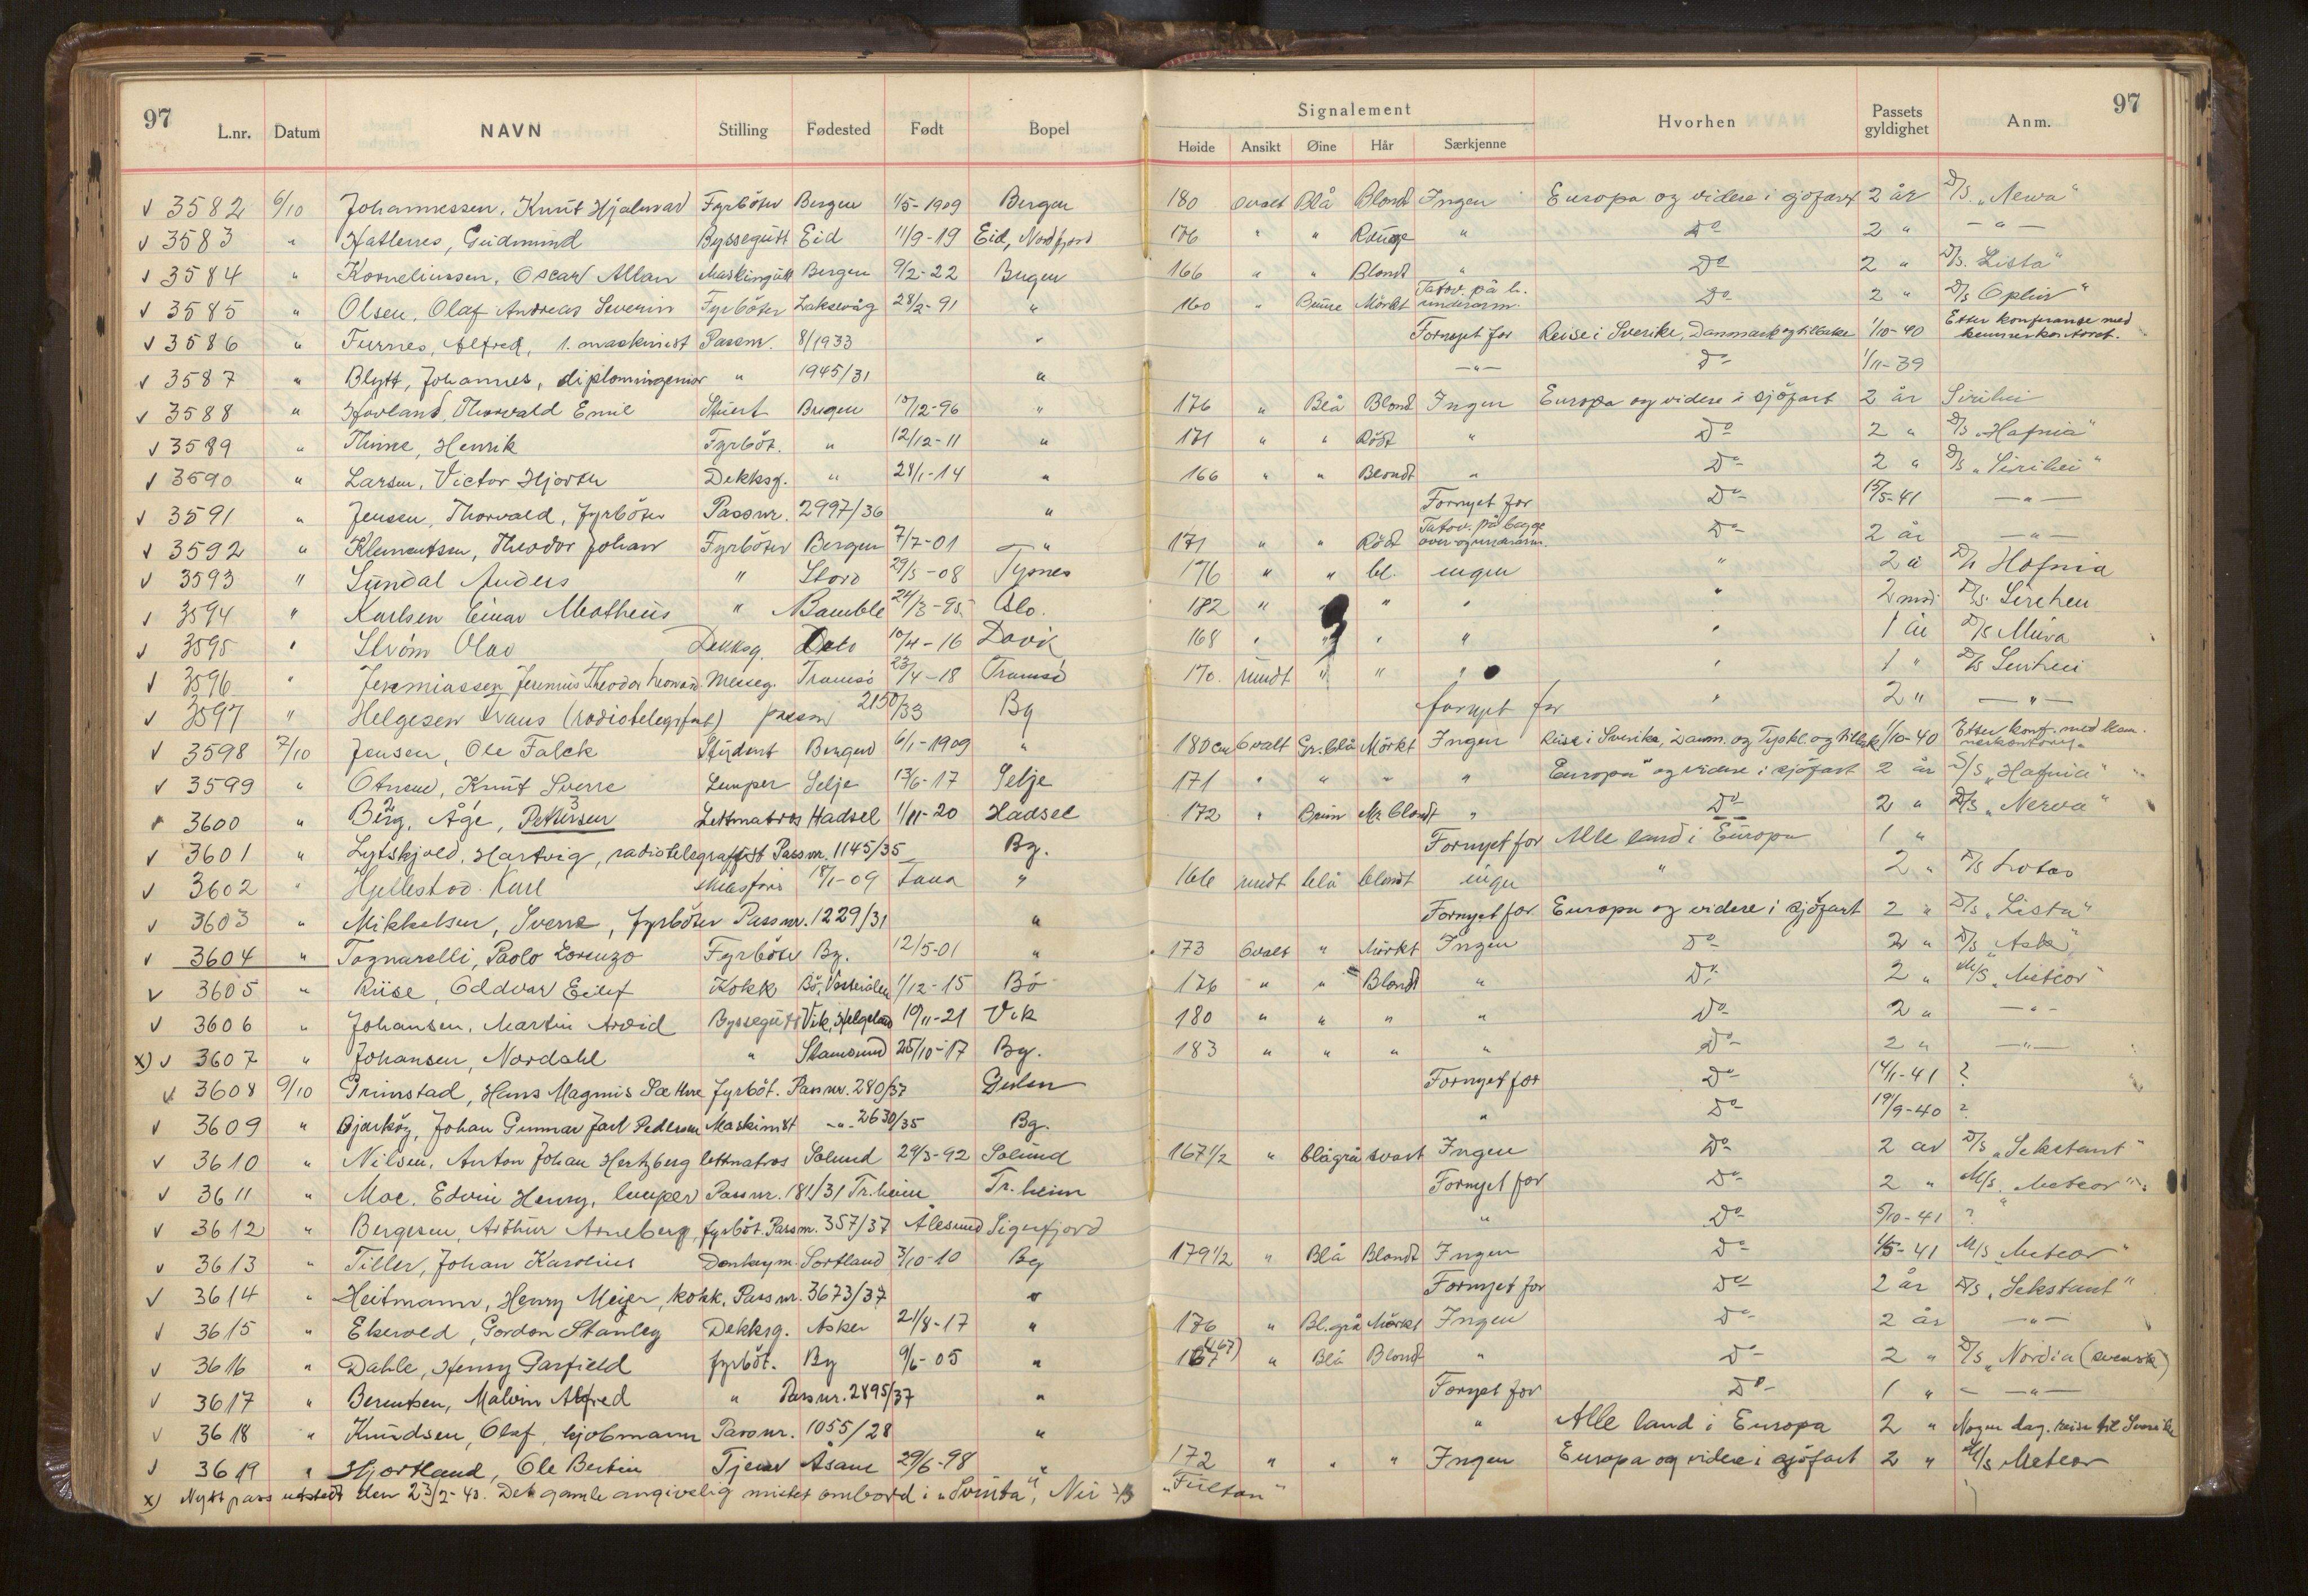 97 97
L.nr. Datum NAVN Stilling Fødested Født Bopel Signalement Hvorhen Passets gyldighet Anm.
Høide Ansikt Øine Hår Særkjenne
√ 3582 6/10 Johannessen, Knut Hjalmar Fyrböter Bergen 1/5-1909 Bergen 180 Ovalt Blå Blondt Ingen Europa og videre i sjøfart 2 år D/S. „Newa"
√ 3583 " Hatlenes, Gudmund Byssegutt Eid 11/9-19 Eid, Nordfjord 176 " " " Do 2 " — " —
√ 3584 " Korneliussen, Oscar Allan Maskingutt Bergen 9/2-22 Bergen 166 " " Blondt " Do 2 " D/S. Lista"
√ 3585 " Olsen, Olaf Andreas Severin Fyrböter Laksevåg 28/2-91 " 160 " Brune Mörkt Tatov. på h. underarm. Do 2 " D/S Ophir"
√ 3586 " Furnes, Alfred, 1. maskinist Passnr. 8/1933 " Fornyet for Reise i Sverike, Danmark og tilbake 1/10-40 Etter konferanse med kammerkontoret.
√ 3587 " Blytt, Johannes, diplomingeniør " 1945/31 " —"— Do 1/11-39
√ 3588 " Hovland, Thorvald Emil Stuert Bergen 10/12-96 " 176 " Blå Blond Ingen Europa og videre i sjöfart 2 år Sirihei
√ 3589 " Thime, Henrik Fyrböt. " 12/12-11 " 171 " " Rödt " Do 2 " D/S „Hafnia"
√ 3590 " Larsen, Victor Hjorth Dekksg. " 28/1-14 " 166 " " Blondt " Do 2 " D/S „Sirihei"
√ 3591 " Jensen, Thorvald, fyrböter Passnr. 2997/36 " Fornyet for Do 15/5-41 —"—
√ 3592 " Klementsen, Theodor Johan Fyrböter Bergen 7/7-01 " 171 " " Rödt Tatov. på begge over- og underarm. Do 2 år —"—
√ 3593 " Sundal Anders " Stord 29/3-08 Tysnes 176 " " bl. ingen " 2 å D/S Hafnia
√ 3594 " Karlsen Einar Matheus " Bamble 24/3-95 Oslo. 182 " " " " 2 mnd D/S Sirehei
√ 3595 " Ström Olav Dekksg. Oslo 10/4-16 Davik 168 " " " " " 1 år D/S
√ 3596 " Jeremiassen Jeremias Theodor Leonard. Messeg. Tromsö 23/4-18 Tromsö 170. rundt " " " " 1 " D/S Sirihei
√ 3597 " Helgesen Hans (radiotelegrfist) passnr 2150/33 Bg fornyet for " 2 " — " —
√ 3598 7/10 Jensen, Ole Falck Student Bergen 6/1-1909 " 180 cm Ovalt Gr.blå Mörkt Ingen Reise i Sverike, Danm. og Tyskl. og tilbake 1/10-40 Etter konf. med kammerkontoret.
√ 3599 " Otnene, Knut Sverre Lemper Selje 13/6-17 Selje 171 " " " " Europa og videre i sjöfart 2 år D/S „Hafnia"
3600 " Berg, Åge, Pettersen Lettmatros Hadsel 1/11-20 Hadsel 172 " Brun M. blondt " Do 2 " D/S „Nerva"
√ 3601 " Lytskjold, Hartvig, radiotelegrafist Passnr. 1145/35 Bg. Fornyet for Alle land i Europa 1 "
√ 3602 " Hjellestad Karl 18/1-09 Fana " 166 rundt blå blondt ingen " 2 " D/S Lotos
√ 3603 " Mikkelsen, Sverre, fyrböter Passnr. 1229/31 " Fornyet for Europa og videre i sjöfart 2 " D/S „Lista"
√ 3604 " Tognarelli, Paolo Lorenzo Fyrböter Bg. 12/5-01 " 173 Ovalt " Mörkt Ingen Do 2 " D/S „Ask"
√ 3605 " Riise, Oddvar Eilef Kokk Bö, Vesterålen 1/12-15 Bö 176 " " Blondt " Do 2 " M/S „Meteor"
√ 3606 " Johansen, Martin Arvid Byssegutt Vik, Helgeland 19/11-21 Vik 180 " " " " Do 2 " —"—
x) √ 3607 " Johansen, Nordahl " Stamsund 25/10-17 Bg. 183 " " " " Do 2 " —"—
√ 3608 9/10 Grimstad, Hans Magnus Sættre fyrböt. Passnr. 280/37 Gulen Fornyet for Do 14/1-41 ?
√ 3609 " Bjarköy, Johan Gunnar Jarl Pedersen Maskinist —"— 2630/35 Bg. " Do 19/9-40 ?
√ 3610 " Nilsen, Anton Johan Hertzberg lettmatros Solund 29/3-92 Solund 167 1/2 " blågrå svart Ingen Do 2 år D/S „Sekstant"
√ 3611 " Moe, Edvin Henry, lemper Passnr. 181/31 Tr.heim Tr.heim Fornyet for Do 2 " M/S. „Meteor"
√ 3612 " Bergesen, Arthur Arneberg, fyrböt. Passnr. 357/37 Ålesund Sigerfjord " Do 5/10-41 ?
√ 3613 " Tiller, Johan Karolius Donkeym. Sortland 3/10-10 Bg 179 1/2 " Blå Blondt Ingen Do 1/5-41 M/S „Meteor"
√ 3614 " Heitmann, Henry Meijer, kokk, Passnr. 3673/37 " Fornyet for Do 2 år D/S „Sekstant"
√ 3615 " Ekerold, Gordon Stanley Dekksg. Asker 21/8-17 " 176 " Bl.grå Mörkt Ingen Do 2 år —"—
√ 3616 " Dahle, Henry Garfield fyrböt. Bg 9/6-05 " 167 (167) " Blå Blondt " Do 2 " D/S „Nordia (svensk)
√ 3617 " Berentsen, Malvin Alfred " Passnr. 2895/37 " Fornyet for Do 1 " — —"—
√ 3618 " Knudsen, Olaf, sjömann Passnr. 1055/28 " " Alle land i Europa 2 " Nogen dag. reise til Sverike
√ 3619 " Hjortland, Ole Bertin Tjener Åsane 29/6-98 " 172 " " " Ingen Europa og videre i sjöfart 2 " M/S Meteor
x) Nytt pass utstedt den 23/2-40. Det gamle angivelig mistet ombord i „Svinta", Nu D/S „Fulton"